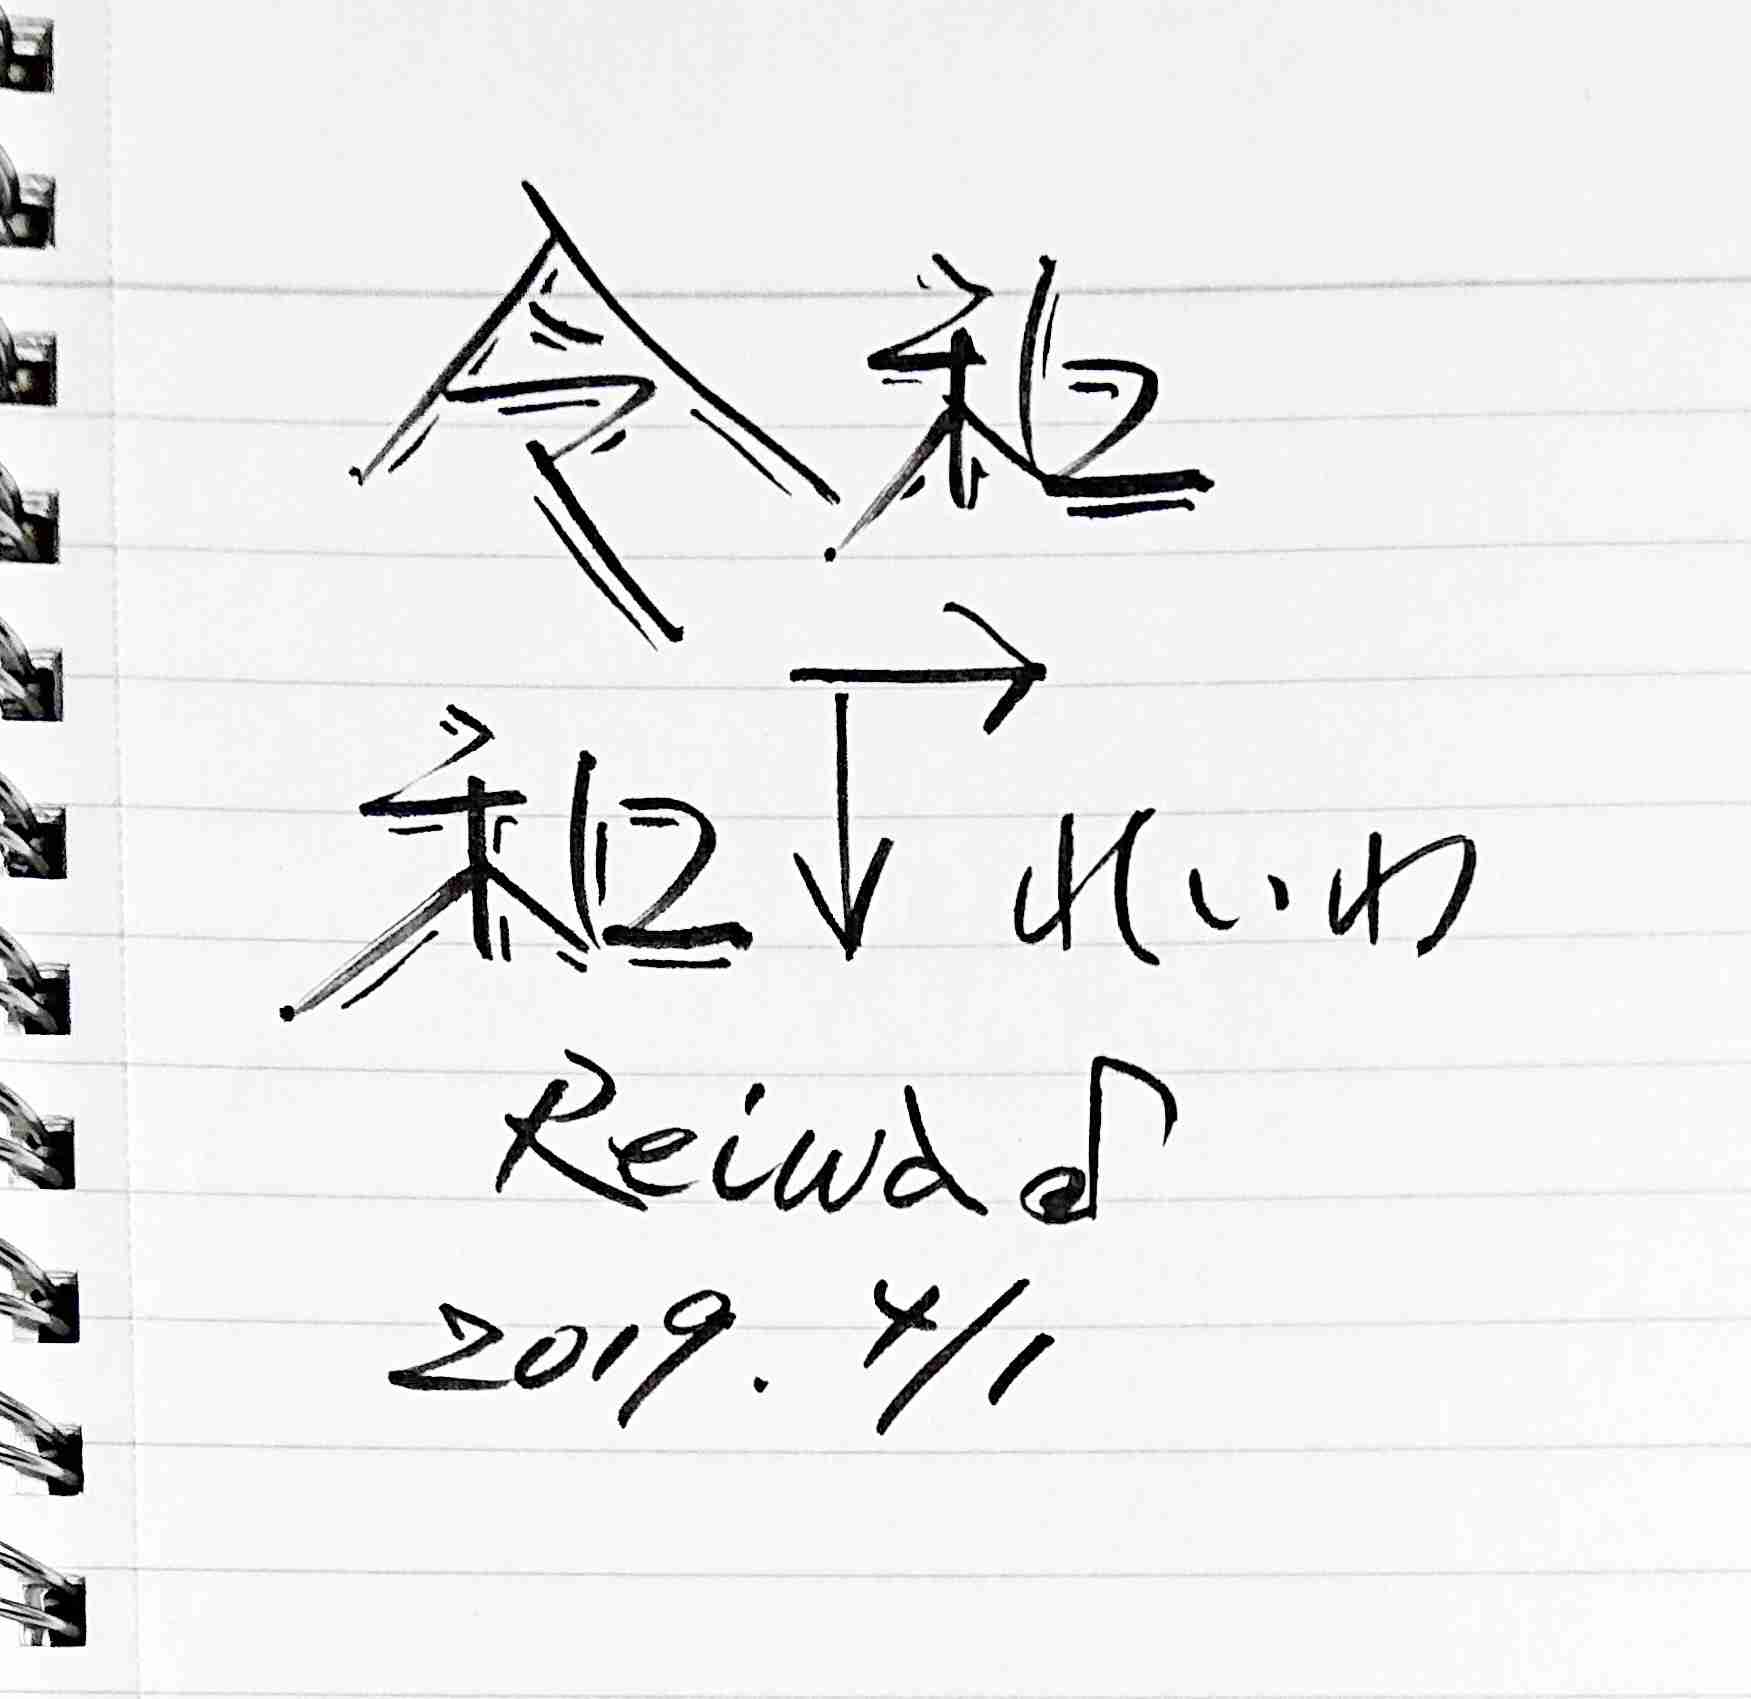 令和
→
和↓れいわ
Reiwa♪
2019. 4/1